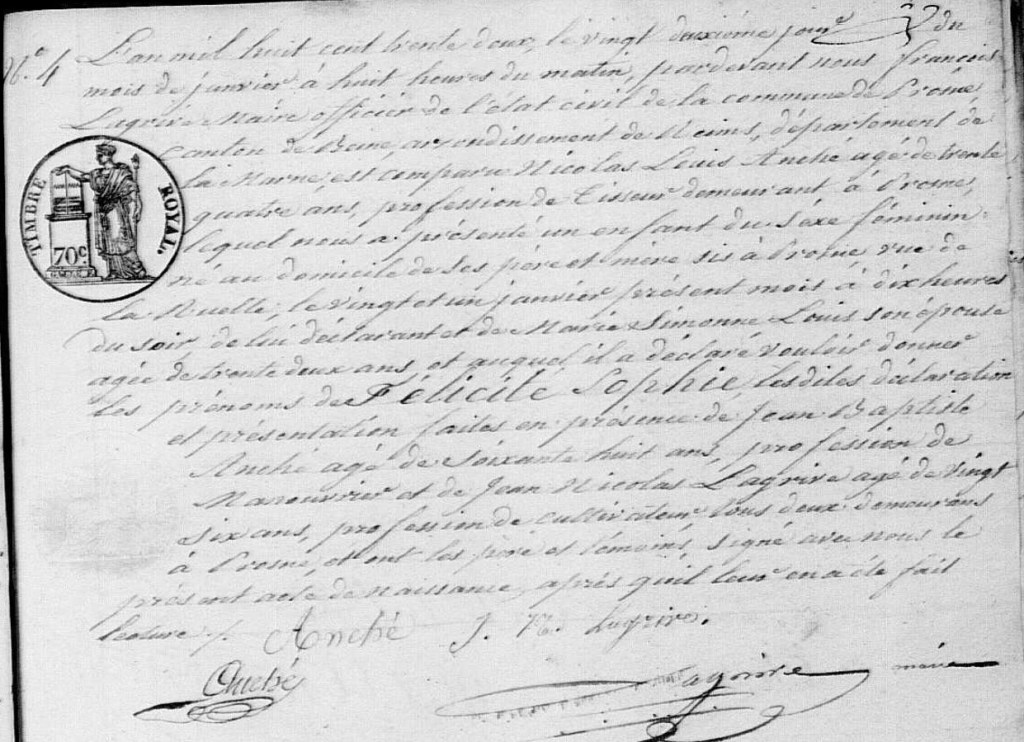 N.º 4
L'an mil huit cent trente deux, le vingt deuxième jour du
mois de janvier à huit heures du matin, pardevant nous françois
Lagrive Maire officier de l'état civil de la commune de Prosne
canton de Beine, arrondissement de Reims, département de
la Marne, est comparu Nicolas Louis Anché agé de trente
quatre ans, profession de Tisseur demeurant à Prosne,
lequel nous a présenté un enfant du séxe féminin
né au domicile de ses père et mère sis à Prosne rue de
la Ruelle, le vingt et un janvier présent mois à dix heures
du soir, de lui déclarant et de Marie Simonne Louis son épouse
agée de trente deux ans, et auquel il a déclaré vouloir donner
les prénoms de Felicité Sophie, les dites déclaration
et présentation faites en présence de Jean Baptiste
Anché agé de soixante huit ans, profession de
Manouvrier et de Jean Nicolas Lagrive agé de vingt
six ans, profession de cultivateur tous deux demeurans
à Prosne, et ont les père et témoins, signé avec nous le
présent acte de naissance, après qu'il leur en a été fait
lecture ./.
Anché J. N. Lagrive.
Anché
Lagrive maire
TIMBRE ROYAL.
70c